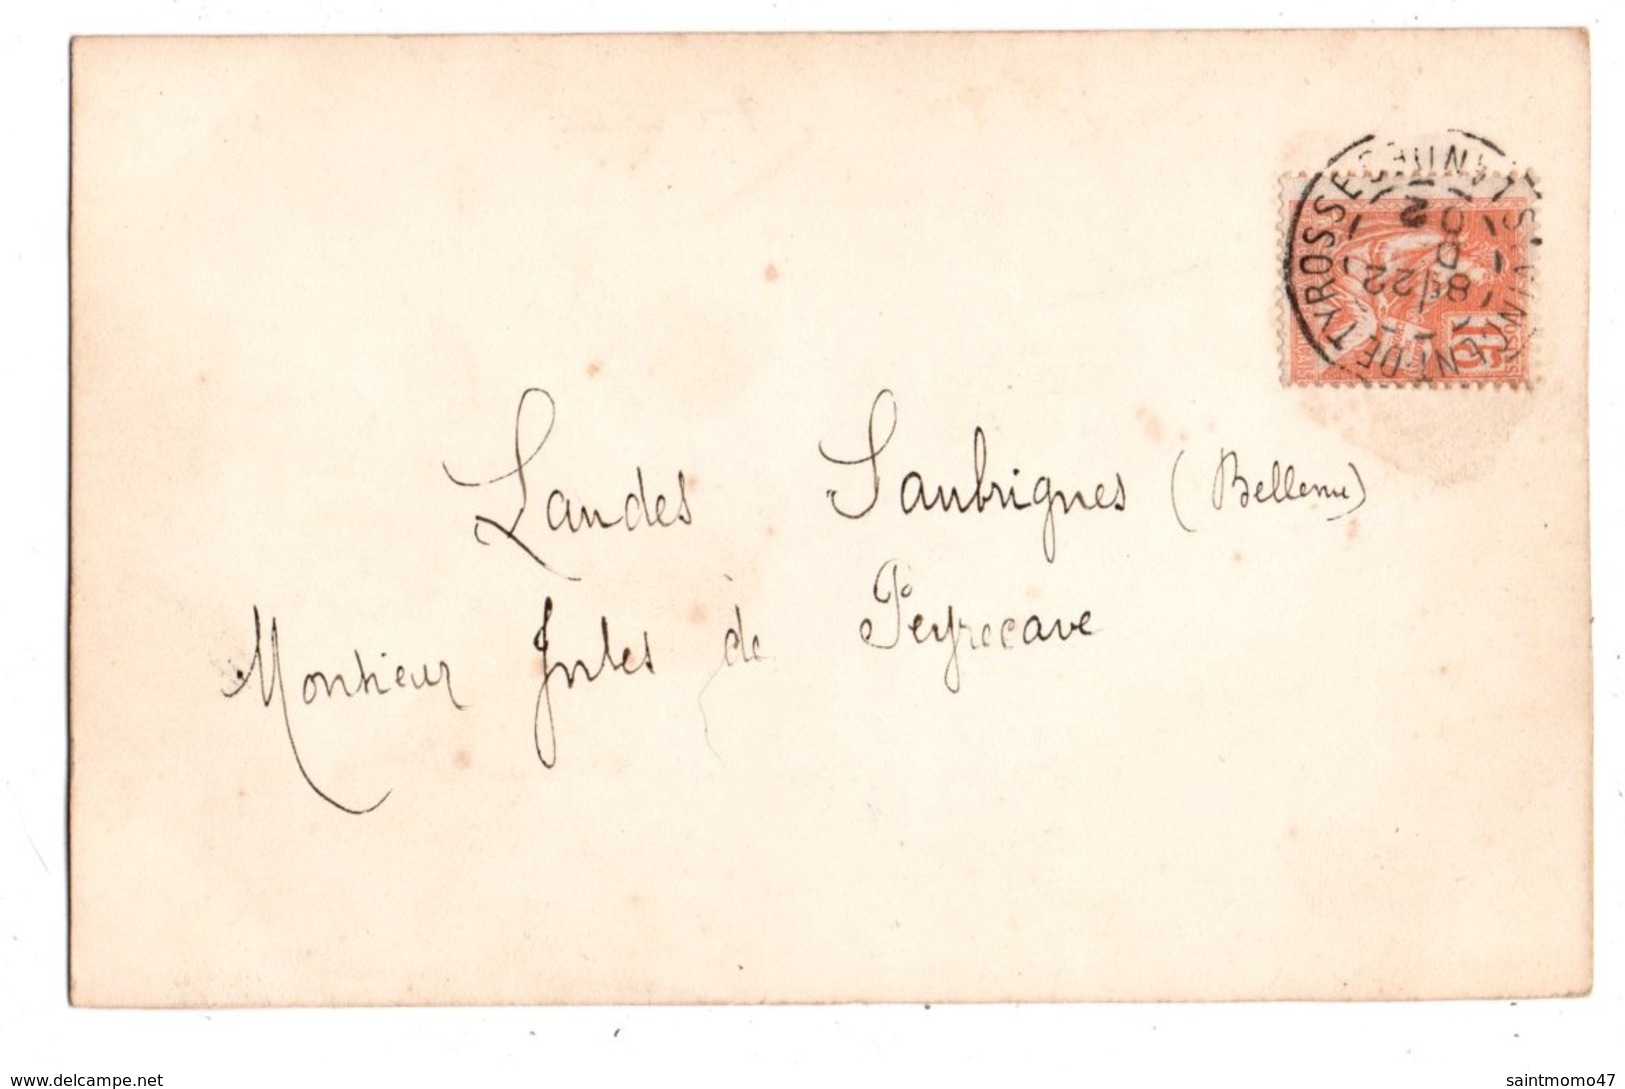 ST VINCENT-DE TYROSSE LANDES
8/22
D
02
15
Landes Saubrignes (Bellevue)
Monsieur Jules de Peyrecave
delcampe.net
saintmomo47